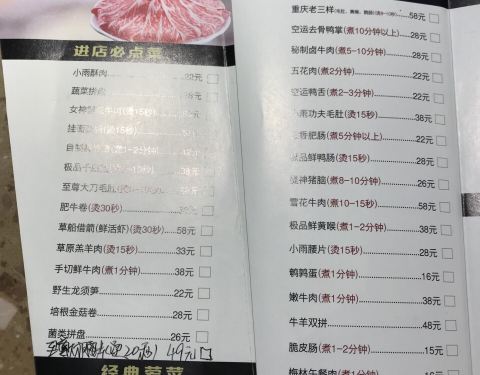 进店必点菜
小雨酥肉 22元
蔬菜拼盘
女神 (烫15秒)
(烫15秒)
自制 (煮1-2分钟) 42元
极品
至尊大刀毛肚
肥牛卷(烫30秒)
草船借箭(鲜活虾)(烫30秒) 58元
草原羔羊肉(烫15秒) 33元
手切鲜牛肉(煮1分钟) 38元
野生龙须笋 22元
培根金菇卷 28元
菌类拼盘 26元
49元
经典荤菜
重庆老三样(毛肚、黄喉、鹅肠)(烫8-10秒) 58元
空运去骨鸭掌(煮10分钟以上) 28元
秘制卤牛肉(煮5-10分钟) 28元
五花肉(煮2分钟) 22元
空运鸭舌(煮2-3分钟) 26元
小雨功夫毛肚(烫15秒) 38元
香肥肠(煮5分钟以上) 22元
品鲜鸭肠(烫15秒) 28元
神猪脑(煮8-10分钟) 26元
雪花牛肉(煮10-15秒) 58元
极品鲜黄喉(煮1-2分钟) 38元
小雨腰片(烫15秒) 28元
鹌鹑蛋(煮1分钟) 16元
嫩牛肉(煮1分钟) 38元
牛羊双拼 48元
脆皮肠(煮1-2分钟) 15元
梅林午餐肉(煮1分钟) 16元